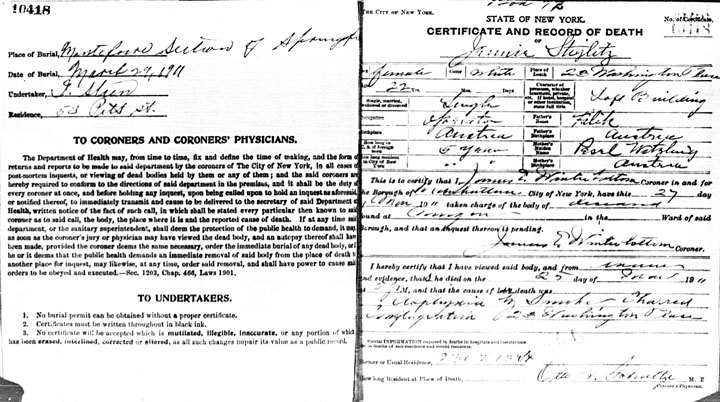 10418
Place of Burial, Montefiore Section of
Date of Burial, March 27, 1911
Undertaker,
Residence, 53 Pitt St.
TO CORONERS AND CORONERS' PHYSICIANS.
The Department of Health may, from time to time, fix and define the time of making, and the form of
returns and reports to be made to said department by the coroners of The City of New York, in all cases of
post-mortem inquests, or viewing of dead bodies held by them or any of them; and the said coroners are
hereby required to conform to the directions of said department in the premises, and it shall be the duty of
every coroner at once, and before holding any inquest, upon being called upon to hold an inquest as aforesaid,
or notified thereof, to immediately transmit and cause to be delivered to the secretary of said Department of
Health, written notice of the fact of such call, in which shall be stated every particular then known to said
coroner as to said call, the body, the place where it is and the reported cause of death. If at any time said
department, or the sanitary superintendent, shall deem the protection of the public health to demand, it may,
as soon as the coroner's jury or physician may have viewed the dead body, and an autopsy thereof shall have
been made, provided the coroner deems the same necessary, order the immediate burial of any dead body, or if
he or it deems that the public health demands an immediate removal of said body from the place of death to
another place for inquest, may likewise, at any time, order said removal, and shall have power to cause said
orders to be obeyed and executed.—Sec. 1203, Chap. 466, Laws 1901.
TO UNDERTAKERS.
1. No burial permit can be obtained without a proper certificate.
2. Certificates must be written throughout in black ink.
3. No certificate will be accepted which is mutilated, illegible, inaccurate, or any portion of which
has been erased, interlined, corrected or altered, as all such changes impair its value as a public record.
THE CITY OF NEW YORK.
STATE OF NEW YORK.
No. of Certificate,
CERTIFICATE AND RECORD OF DEATH
OF
Jennie Stiglitz
Sex female Color White Place of Death 23 Washington Place
22 Yrs. Mos. Days Character of premises, whether tenement, private, etc. If hotel, hospital or other institution, state full title Loft Building
Single, married, widowed or divorced Single
Occupation Operator Father's Name
Birthplace Austria Father's Birthplace Austria
How long in U.S. if foreign born 5 years Mother's Maiden Name Pearl
How long resident in City of New York Mother's Birthplace Austria
This is to certify that I James E. Winterbottom Coroner in and for
the Borough of Manhattan City of New York, have this 27 day
of Mar 1911 taken charge of the body of deceased
found at Morgue in the Ward of said
Borough, and that an inquest thereon is pending.
James E. Winterbottom Coroner.
I hereby certify that I have viewed said body, and from
and evidence, that he died on the 25 day of Mar 1911
at M, and that the cause of her death was
Asphyxia by Smoke Charred
Conflagration 23 Washington Place
Special INFORMATION required in deaths in hospitals and institutions
and in deaths of non-residents and recent residents.
Former or Usual Residence,
How long Resident at Place of Death,
Otto H. Schultze M. D.
Coroner's Physician.